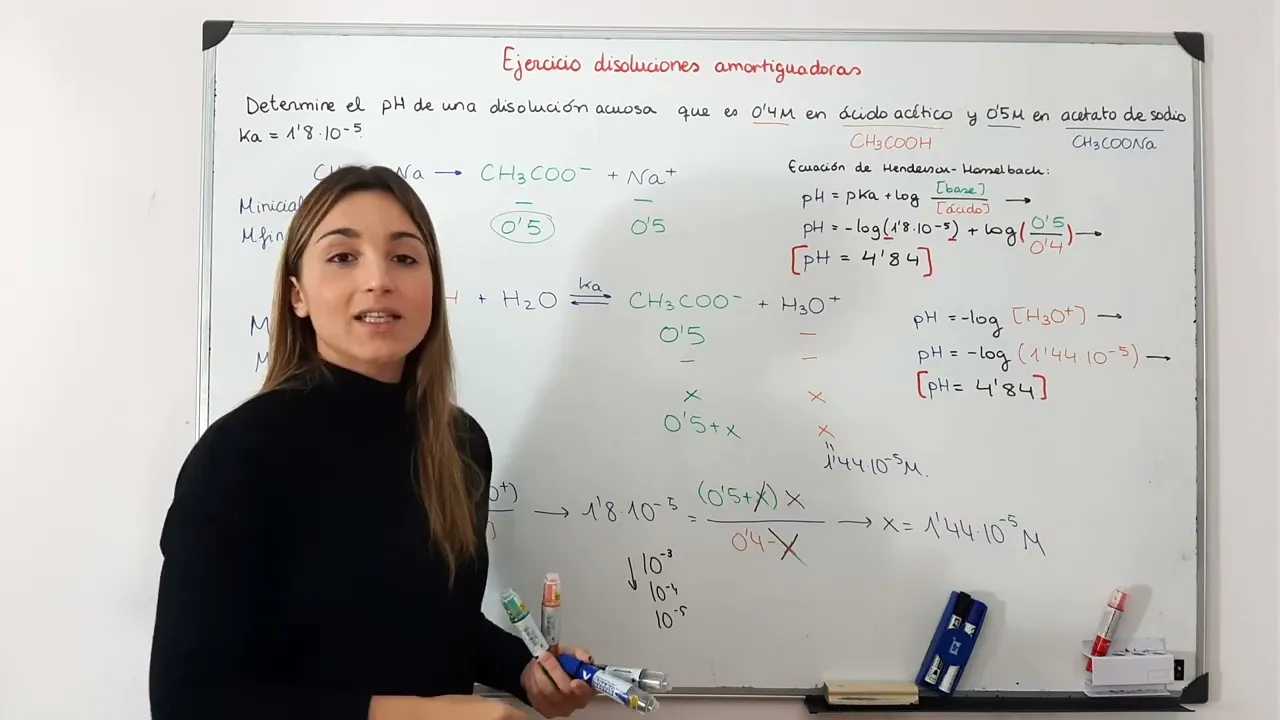 Ejercicio disoluciones amortiguadoras
Determine el pH de una disolución acuosa que es 0'4M en ácido acético y 0'5M en acetato de sodio
Ka = 1'8·10⁻⁵.
CH₃COOH
CH₃COONa
Na → CH₃COO⁻ + Na⁺
Minicial
— —
0'5 0'5
Ecuación de Henderson-Hasselbach:
pH = pKa + log [base]/[ácido] →
pH = -log(1'8·10⁻⁵) + log(0'5/0'4) →
[pH = 4'84]
H + H₂O ⇌ CH₃COO⁻ + H₃O⁺
Ka
M 0'5 —
M — —
x x
0'5+x x
"
1'44·10⁻⁵M.
pH = -log [H₃O⁺] →
pH = -log (1'44·10⁻⁵) →
[pH = 4'84]
→ 1'8·10⁻⁵ = (0'5+x) x / 0'4-x → x = 1'44·10⁻⁵ M
↓ 10⁻³
10⁻⁴
10⁻⁵